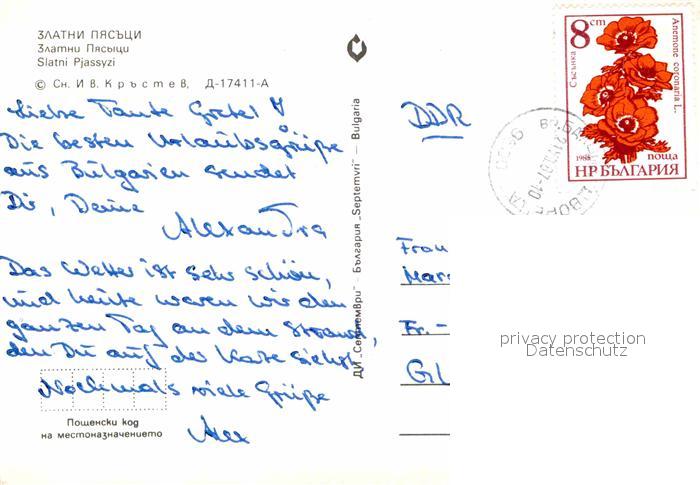 ЗЛАТНИ ПЯСЪЦИ
Златни Пясыци
Slatni Pjassyzi
© Сн. Ив. Кръстев, Д-17411-А
Liebe Tante Gretel!
Die besten Urlaubsgrüße
aus Bulgarien sendet
Dir, Deine
Alexandra
Das Wetter ist sehr schön,
und heute waren wir den
ganzen Tag an dem Strand,
den Du auf der Karte siehst.
Nochmals viele Grüße
Alex
Пощенски код
на местоназначението
ДИ „Септември" – България „Septemvri" – Bulgaria
DDR
8 cm
Съсънка
Anemone coronaria L.
1986 поща
НР БЪЛГАРИЯ
Frau
Mar
Fr.-
Gl
privacy protection
Datenschutz